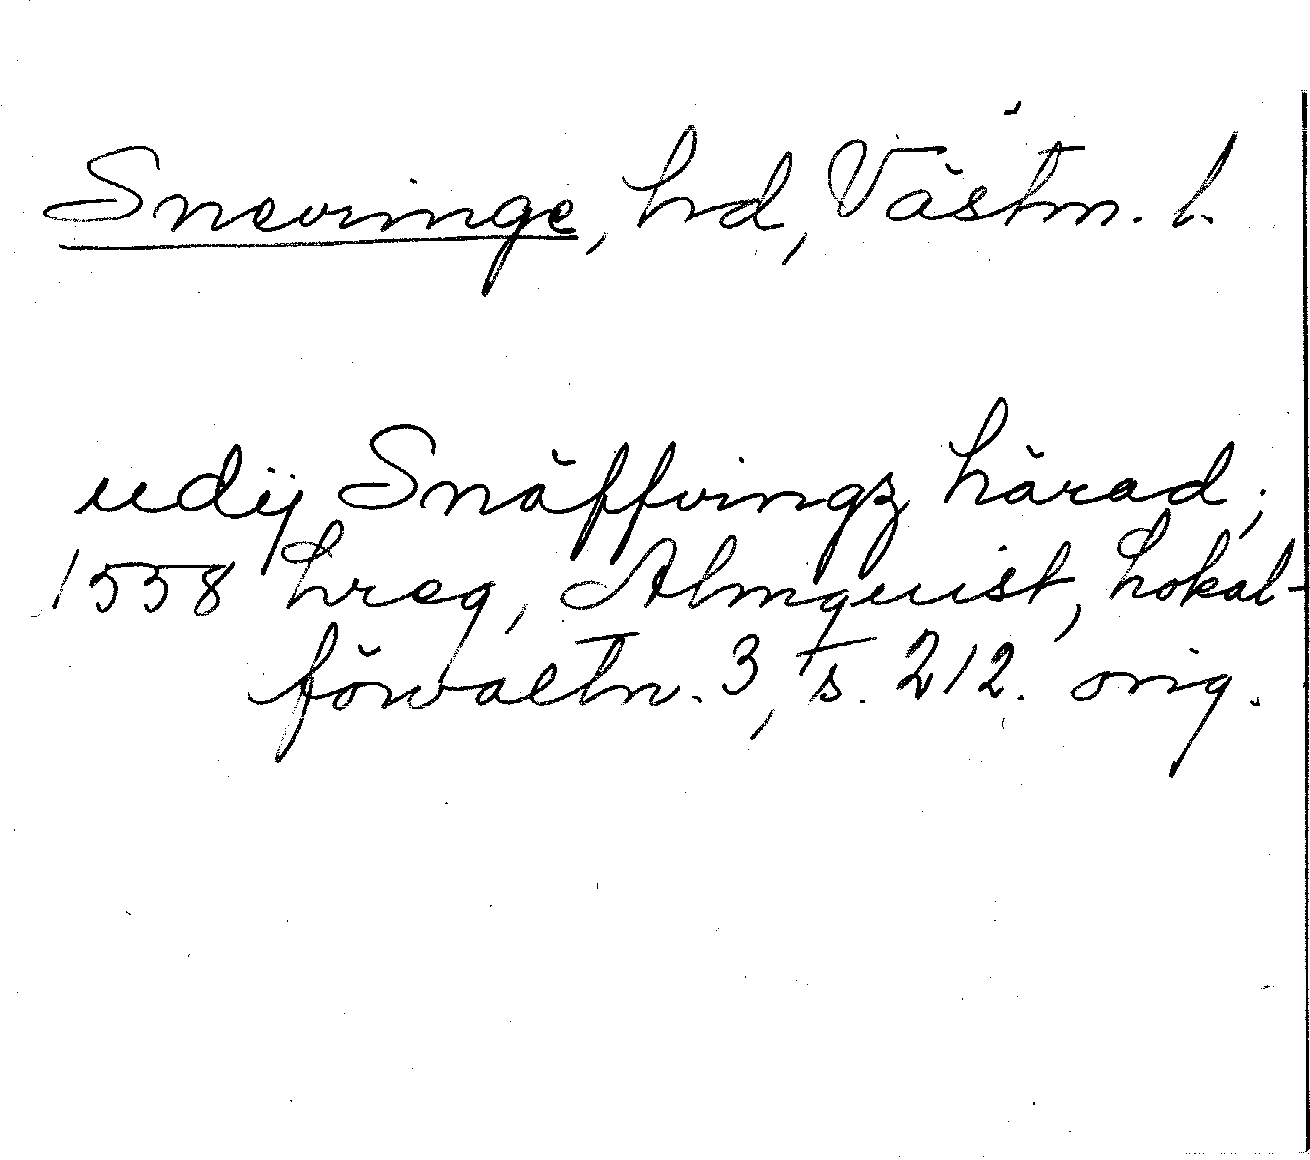 Snevringe, hd, Västm. l.
udij Snäffvingz härad,
1558 hreg, Almquist, Lokal-
förvaltn. 3, s. 212. orig.